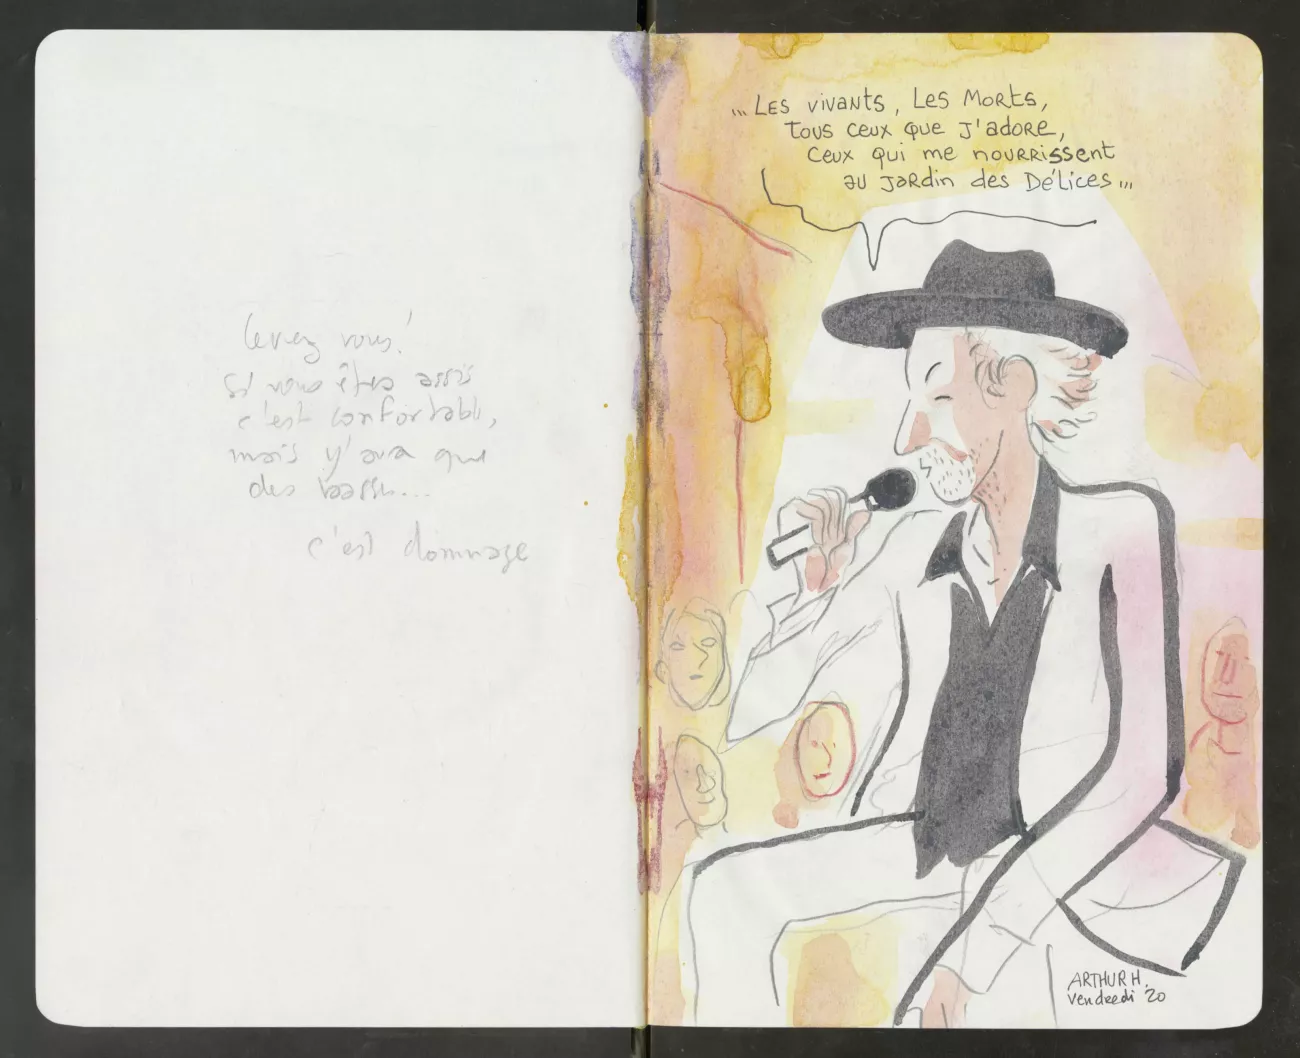 Levez vous!
si vous êtes assis
c'est confortable,
mais y'aura que
des basses...
c'est dommage
... Les vivants, Les Morts,
tous ceux que j'adore,
ceux qui me nourrissent
au jardin des Délices...
ARTHUR H.
vendredi 20